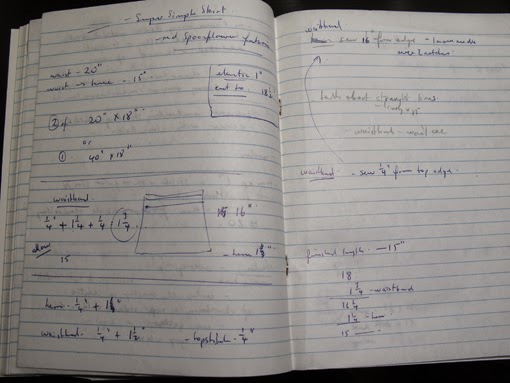 - Super Simple Skirt
- mid Spoonflower fabric
waist - 20"
waist to knee - 15"
elastic 1"
cut to 18½
② of 20" x 18"
or
① 40" x 18"
waistband
¼" + 1¼ + ¼ 1¾
16"
allow
15
- hem
hem - ¼" +
waistband - ¼" + 1½"
- topstitch - ¼"
waistband
sew from edge -
talk about straight lines
- waistband - want one
waistband - sew ¼" from top edge.
finished length - 15"
18
1¾ - waistband
16¼
1¼ - hem
15